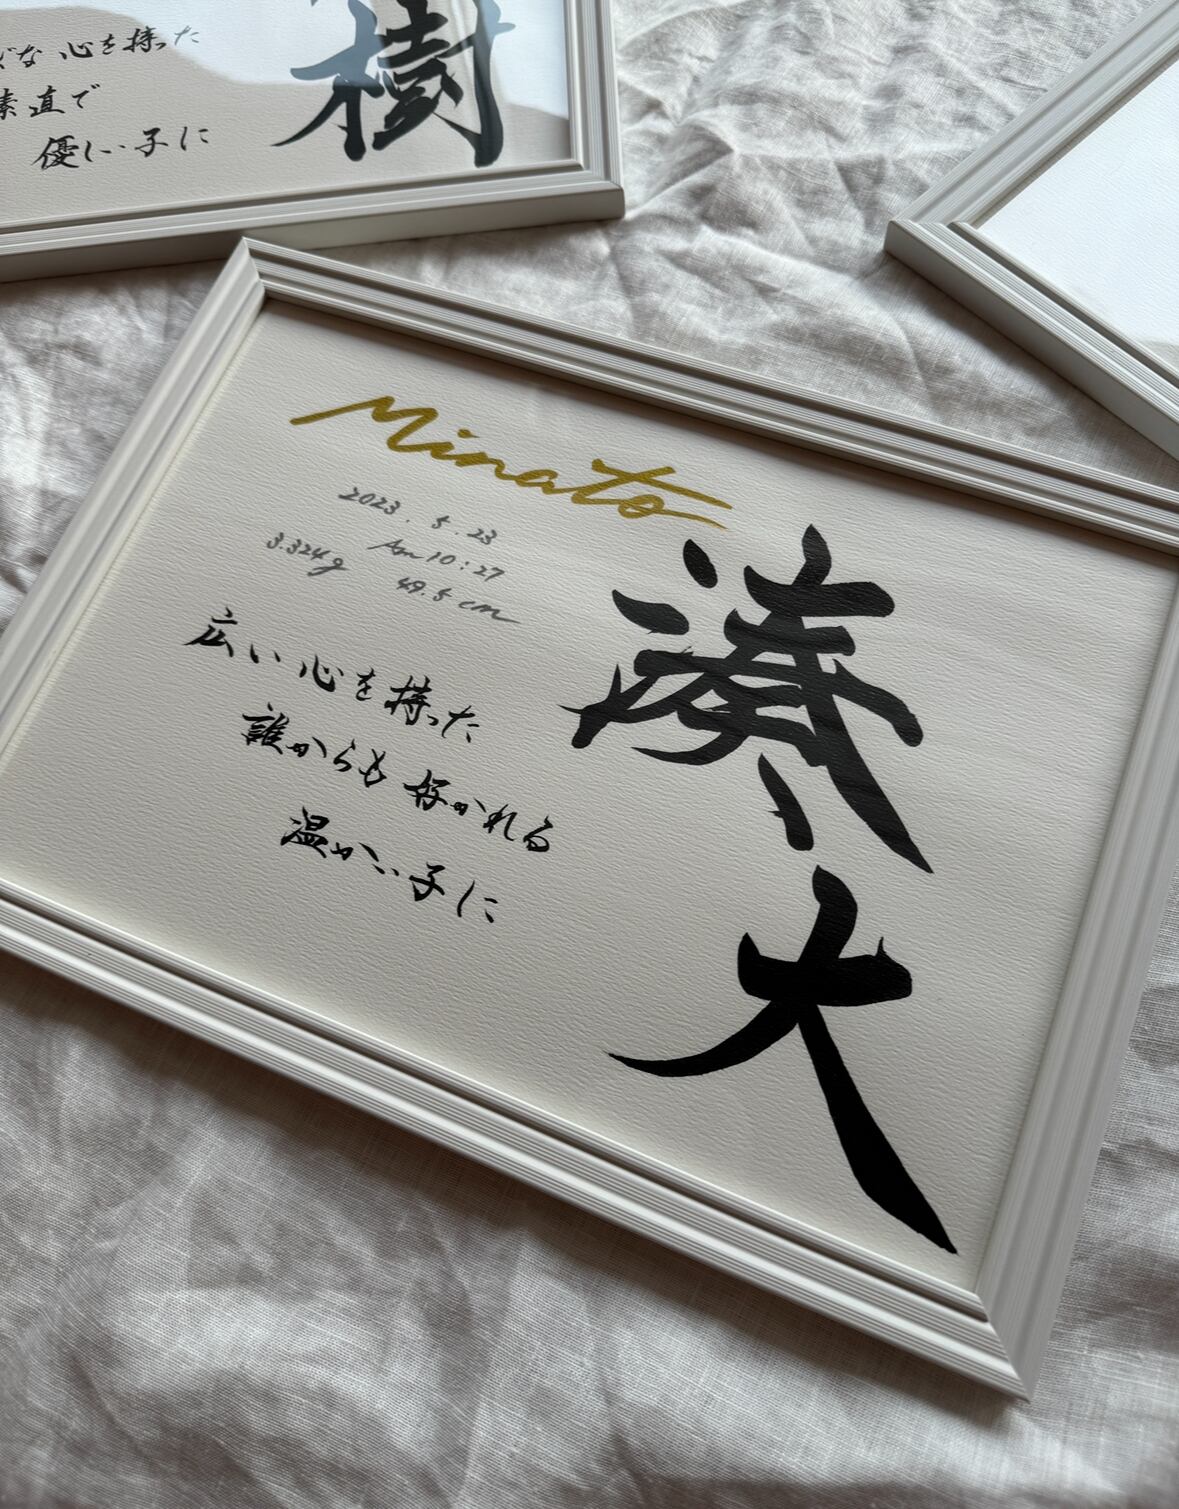 な心を持った
素直で
優しい子に
樹
Minato
2023.5.23
Am 10:27
3.324g 49.5cm
湊大
広い心を持った
誰からも好かれる
温かい子に